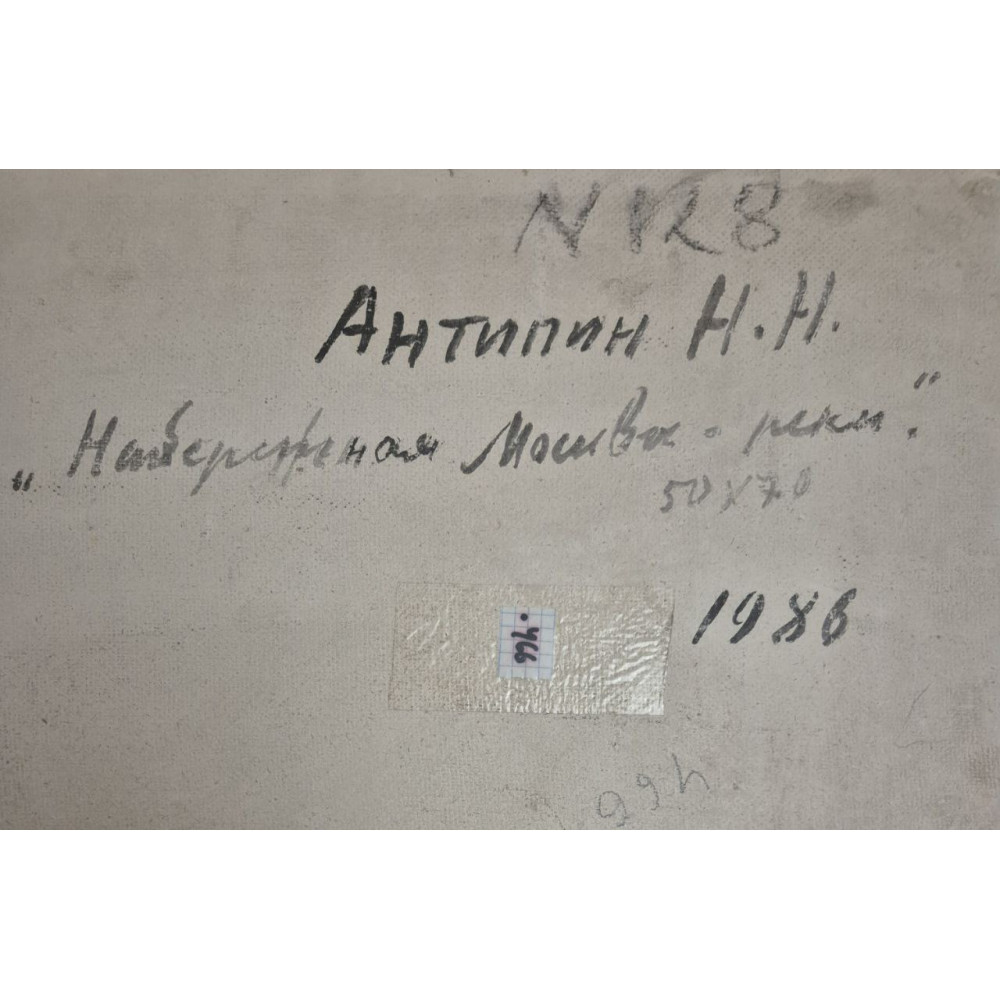 N 128
Антипин Н.Н.
„Набережная Москва-реки".
50х70
1986
.466
.466